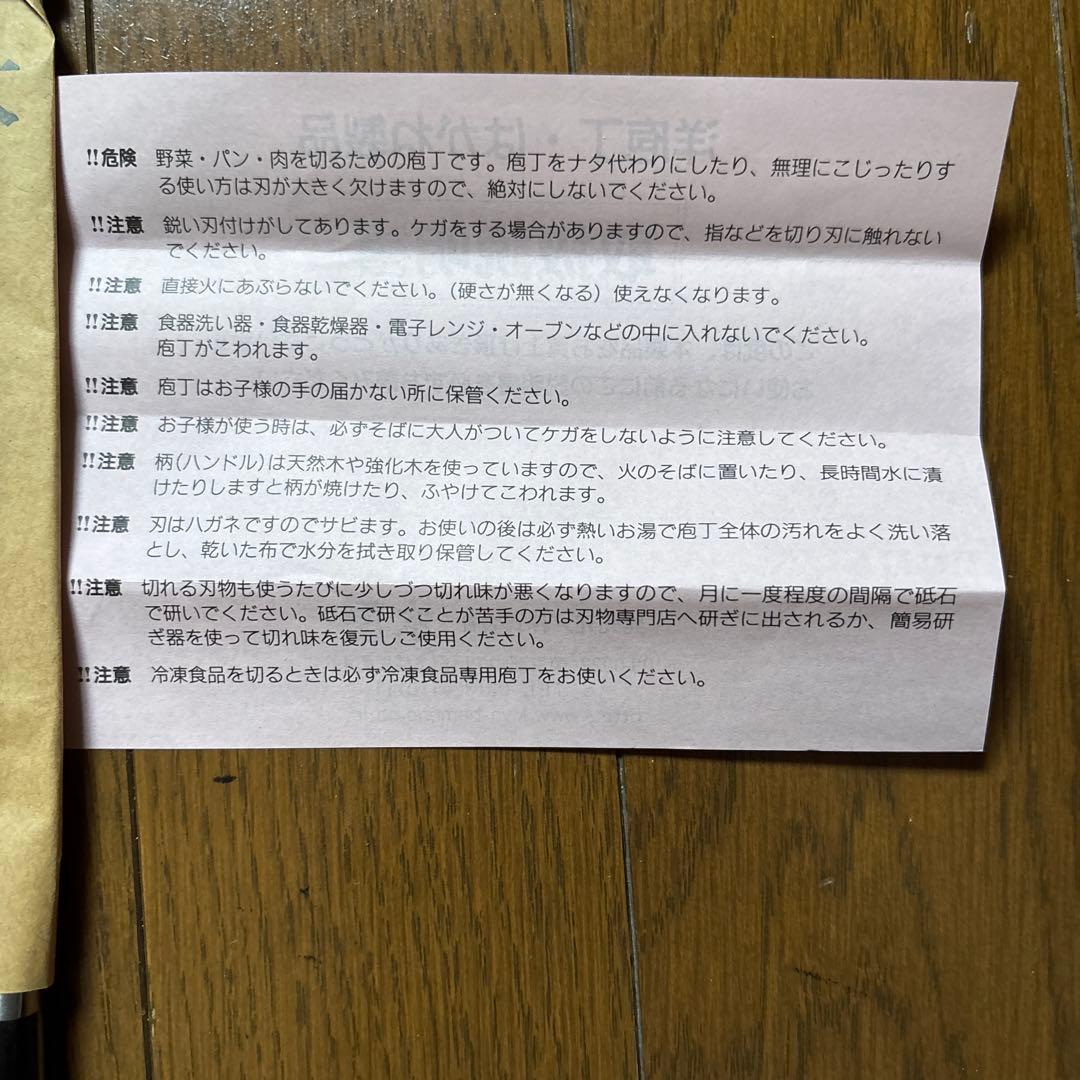 !!危険 野菜・パン・肉を切るための庖丁です。庖丁をナタ代わりにしたり、無理にこじったりす
る使い方は刃が大きく欠けますので、絶対にしないでください。
!!注意 鋭い刃付けがしてあります。ケガをする場合がありますので、指などを切り刃に触れない
でください。
!!注意 直接火にあぶらないでください。(硬さが無くなる)使えなくなります。
!!注意 食器洗い器・食器乾燥器・電子レンジ・オーブンなどの中に入れないでください。
庖丁がこわれます。
!!注意 庖丁はお子様の手の届かない所に保管ください。
!!注意 お子様が使う時は、必ずそばに大人がついてケガをしないように注意してください。
!!注意 柄(ハンドル)は天然木や強化木を使っていますので、火のそばに置いたり、長時間水に漬
けたりしますと柄が焼けたり、ふやけてこわれます。
!!注意 刃はハガネですのでサビます。お使いの後は必ず熱いお湯で庖丁全体の汚れをよく洗い落
とし、乾いた布で水分を拭き取り保管してください。
!!注意 切れる刃物も使うたびに少しづつ切れ味が悪くなりますので、月に一度程度の間隔で砥石
で研いでください。砥石で研ぐことが苦手の方は刃物専門店へ研ぎに出されるか、簡易研
ぎ器を使って切れ味を復元しご使用ください。
!!注意 冷凍食品を切るときは必ず冷凍食品専用庖丁をお使いください。
洋庖丁・はがね製品